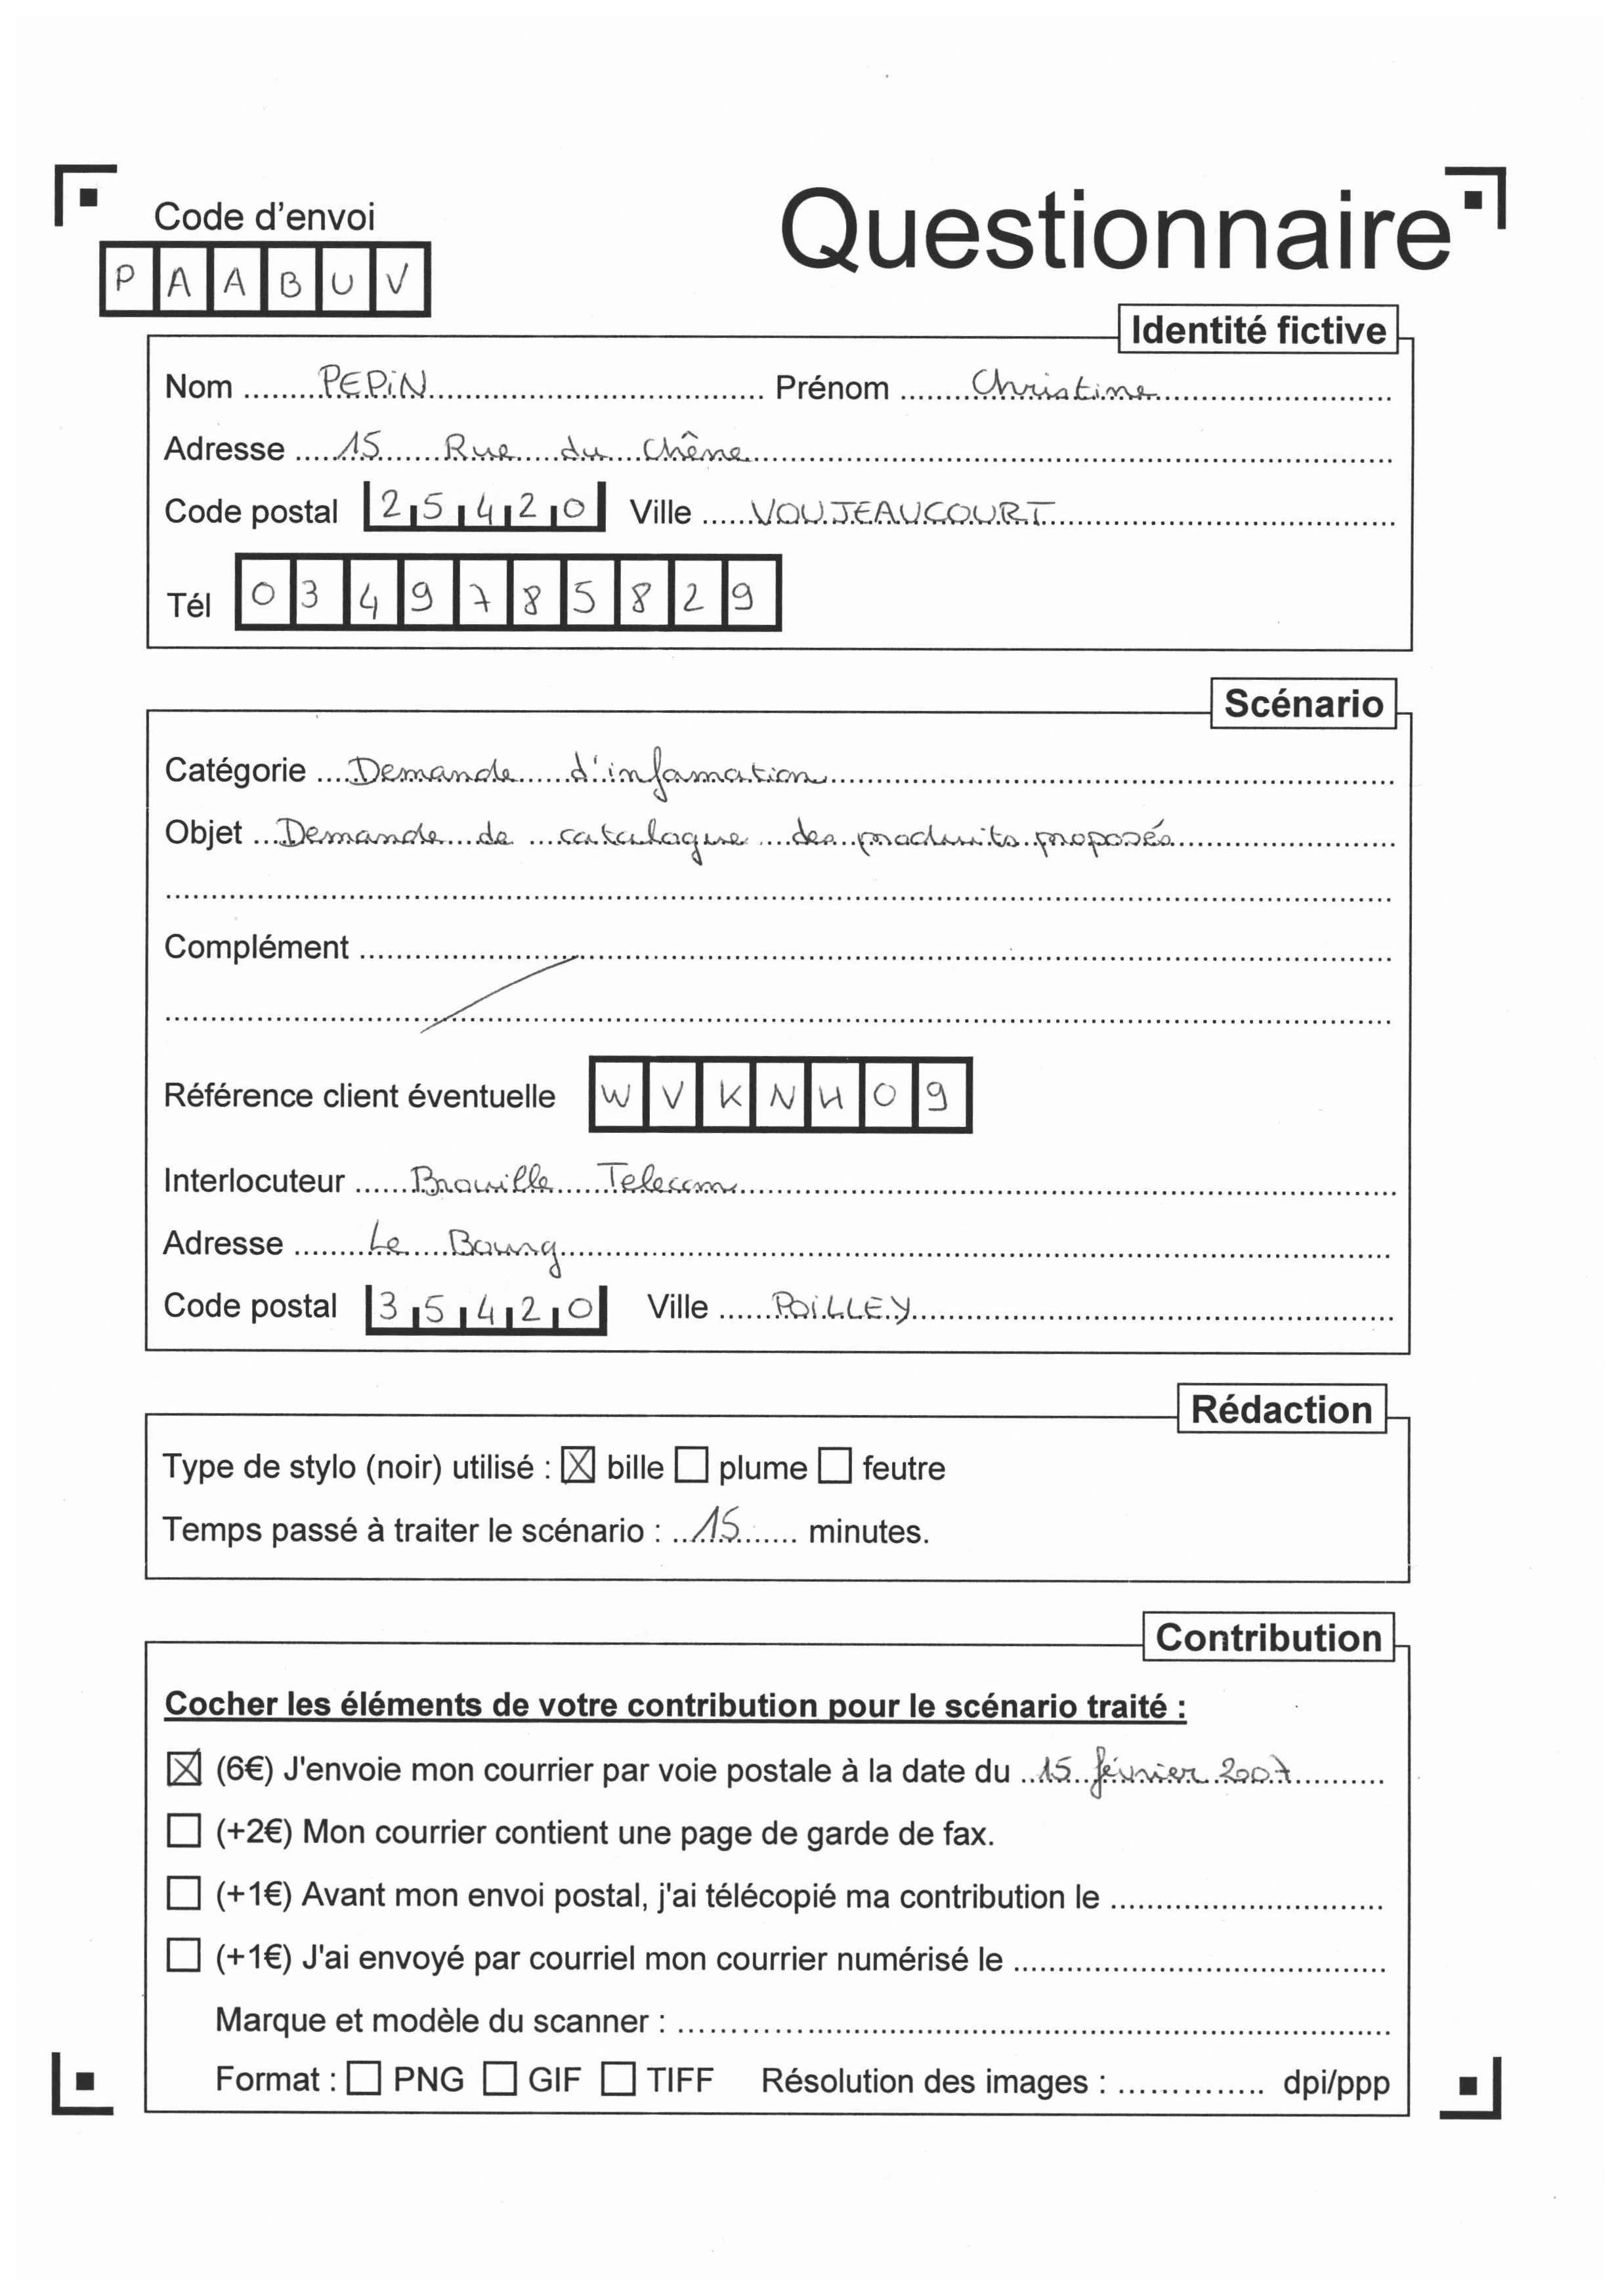 Code d'envoi
Questionnaire
P A A B U V
Identité fictive
Nom ........ PEPiN ........ Prénom ........ Christine ........
Adresse ..... 15 Rue du Chêne ........
Code postal 2 5 4 2 0 Ville ..... VOUJEAUCOURT ........
Tél 0 3 4 9 7 8 5 8 2 9
Scénario
Catégorie .... Demande d'information ........
Objet ... Demande de catalogue des produits proposés ........
Complément ........
Référence client éventuelle W V K N H 0 9
Interlocuteur ...... Brouille Telecom ........
Adresse ........ Le Bourg ........
Code postal 3 5 4 2 0 Ville ...... POiLLEY ........
Rédaction
Type de stylo (noir) utilisé : ☒ bille ☐ plume ☐ feutre
Temps passé à traiter le scénario : .. 15 ....... minutes.
Contribution
Cocher les éléments de votre contribution pour le scénario traité :
☒ (6€) J'envoie mon courrier par voie postale à la date du .. 15 février 2007 ........
☐ (+2€) Mon courrier contient une page de garde de fax.
☐ (+1€) Avant mon envoi postal, j'ai télécopié ma contribution le ........
☐ (+1€) J'ai envoyé par courriel mon courrier numérisé le ........
Marque et modèle du scanner : ........
Format : ☐ PNG ☐ GIF ☐ TIFF Résolution des images : .............. dpi/ppp